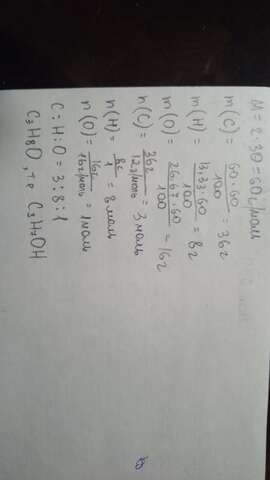 M = 2·30 = 60 г/моль
m(C) = 60·60/100 = 36 г
m(H) = 13,33·60/100 = 8 г
m(O) = 26,67·60/100 = 16 г
n(C) = 36 г/12 г/моль = 3 моль
n(H) = 8 г/1 = 8 моль
n(O) = 16 г/16 г/моль = 1 моль
C : H : O = 3 : 8 : 1
C₃H₈O, т.е C₃H₇OH